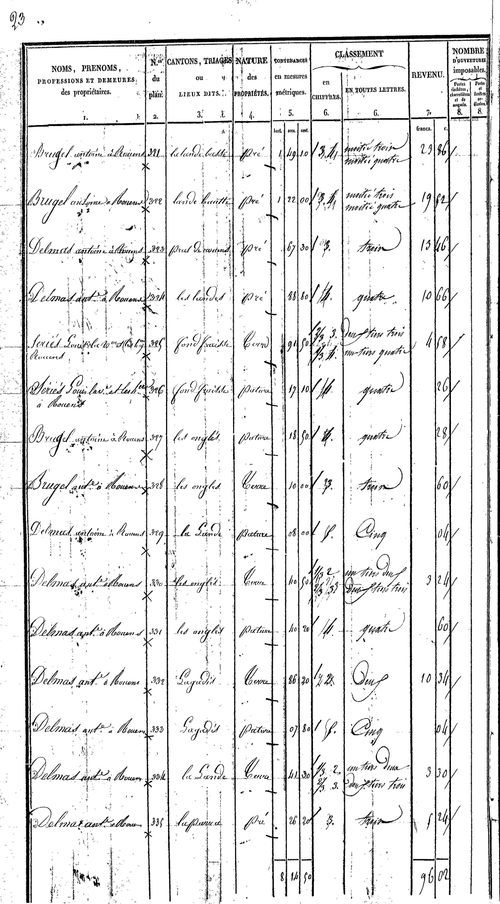 23
NOMS, PRENOMS, PROFESSIONS ET DEMEURES des propriétaires. 1.
N.os du plan. 2.
CANTONS, TRIAGES ou LIEUX DITS. 3.
NATURE des PROPRIÉTÉS. 4.
CONTENANCES en mesures métriques. 5.
CLASSEMENT
en CHIFFRES. 6.
EN TOUTES LETTRES. 6.
REVENU. 7.
NOMBRE D'OUVERTURES imposables.
8. 8.
francs. c.
Brugel antoine à Rouens 321 la lande basse Pré 1 49 10 3, 4 moitié trois moitié quatre 23 86
Brugel antoine à Rouens 322 lande haute Pré 1 22 00 3, 4 moitié trois moitié quatre 19 52
Delmas antoine à Rouens 323 Pré 67 30 3. trois 13 46
Delmas ant.ne à Rouens 324 les landes Pré 88 80 4. quatre 10 66
Rouens 325 fond fraiske Terre 91 50 2/3 3. 1/3 4. deux tiers trois un tiers quatre 4 58
à Rouens 326 fond fraiske pature 17 10 4. quatre 26
Brugel antoine à Rouens 327 les onglés pature 18 50 4. quatre 28
Brugel ant.ne à Rouens 328 les onglés Terre 10 00 3. trois 60
Delmas antoine à Rouens 329 la Lande pature 08 00 5. Cinq 04
Delmas ant.ne à Rouens 330 les onglés Terre 40 50 1/3 2 2/3 3 un tiers deux deux tiers trois 3 24
Delmas ant.ne à Rouens 331 les onglés pature 40 20 4. quatre 60
Delmas ant.ne à Rouens 332 Lagadis Terre 86 20 2. Deux 10 34
Delmas ant.ne à Rouens 333 Lagadis pature 07 80 5. Cinq 04
Delmas ant.ne à Rouens 334 la Lande Terre 41 30 1/3 2. 2/3 3. un tiers deux deux tiers trois 3 30
Delmas ant.ne à Rouens 335 Pré 26 20 3. trois 5 24
8 14 50 96 02